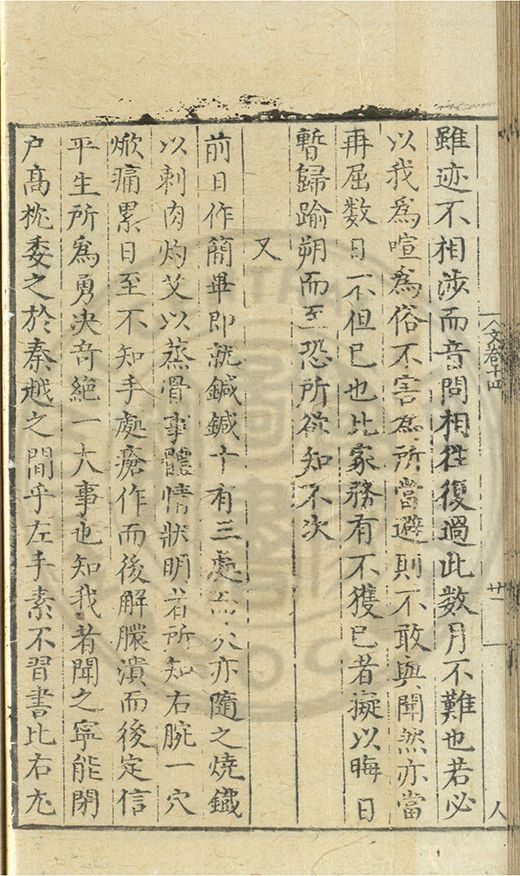 雖迹不相涉而音問相往復過此數月不難也若必
以我爲喧爲俗不害爲所當避則不敢與聞然亦當
再屈数日不但已也比家務有不獲已者擬以晦日
暫歸踰朔而至恐所欲知不次
又
前日作簡畢即就鍼鍼十有三處而灾亦隨之燒鐵
以剌肉灼艾以蒸骨事體情狀明者所知右腕一穴
焮痛累日至不知手處瘡作而後解膿潰而後定信
平生所爲勇決奇絶一大事也知我者聞之寧能閉
户高枕委之於秦越之間乎左手素不習書比右尤
文卷十四
廿一
人